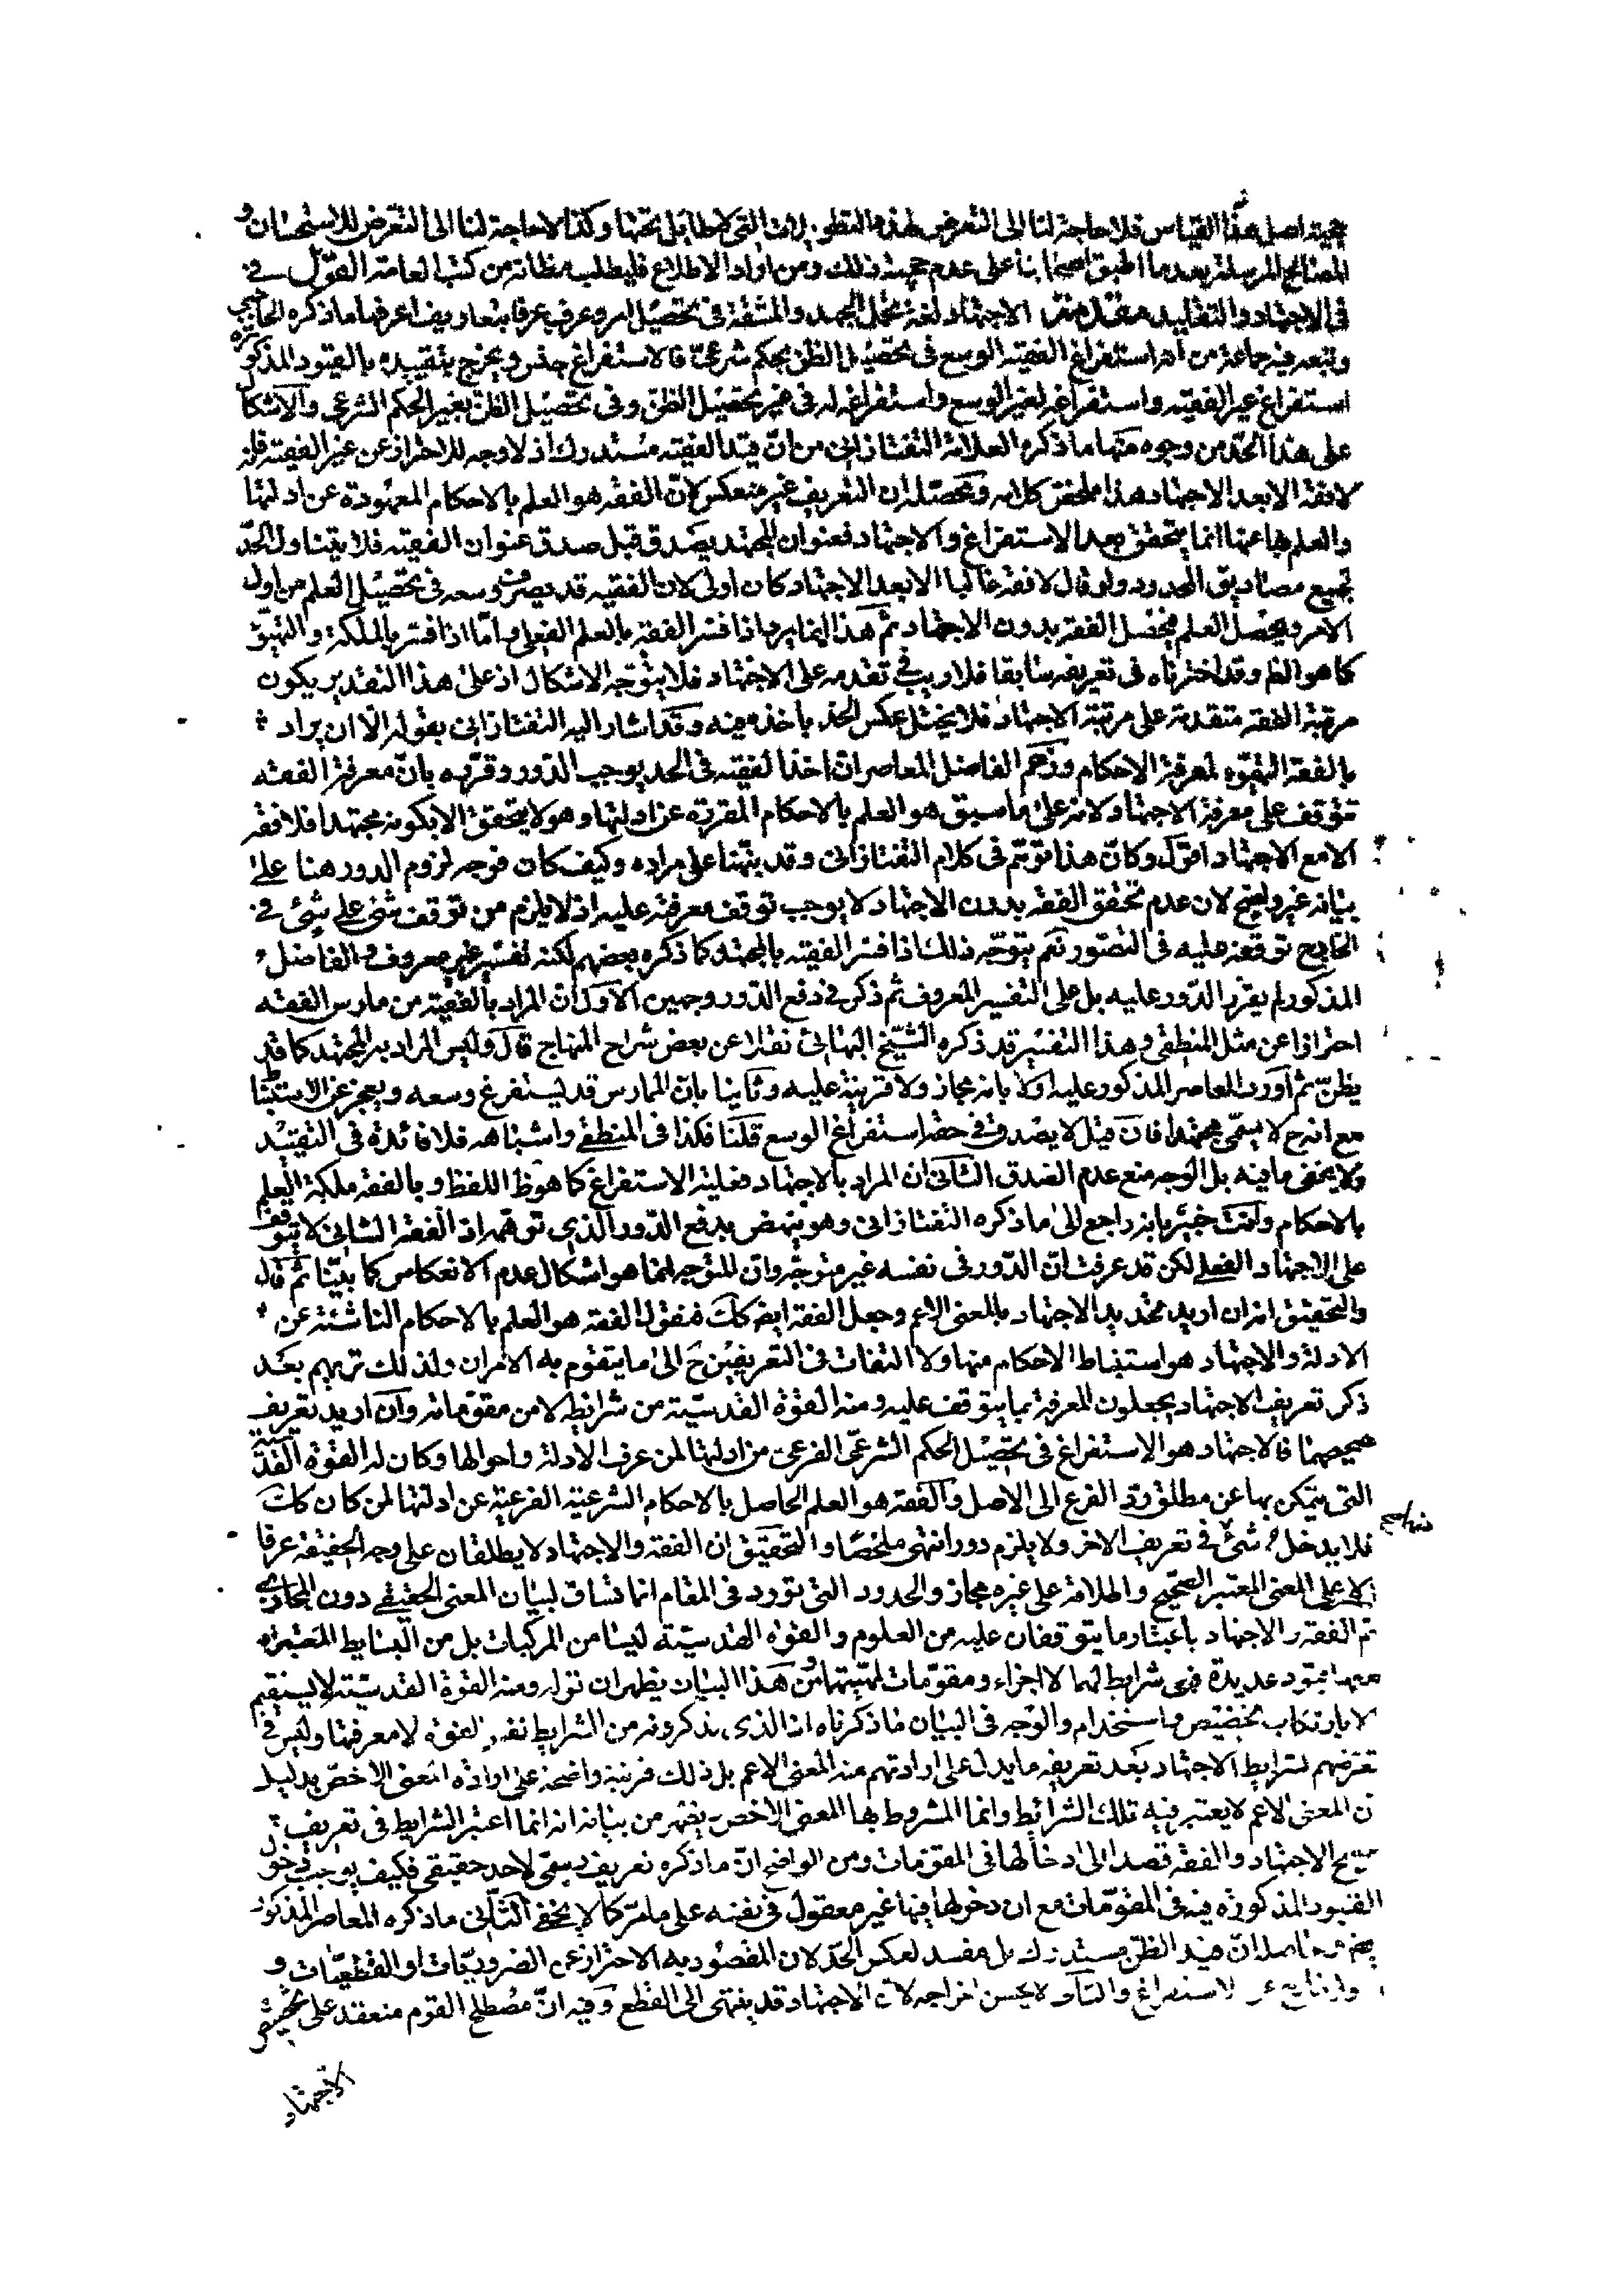 حجية اصل هذا القياس فلا حاجة لنا الى التعرض لهذه التطويلات التي لا طائل تحتها وكذا لا حاجة لنا الى التعرض للاستحسان و
المصالح المرسلة بعد ما اطبق اصحابنا على عدم حجية ذلك ومن اراد الاطلاع فليطلب مظانه من كتب العامة القول في
في الاجتهاد والتقليد مقدمة الاجتهاد لغة تحمل الجهد والمشقة في تحصيل امر وعرف عرفا بتعاريف اعرفها ما ذكره الحاجبي
وتبعه فيه جماعة من انه استفراغ الفقيه الوسع في تحصيل الظن بحكم شرعي فالاستفراغ جنس ويخرج بتقييده بالقيود المذكورة
استفراغ غير الفقيه واستفراغه لغير الوسع واستفراغه له في غير تحصيل الظن وفي تحصيل الظن بغير الحكم الشرعي والاشكال
على هذا الحد من وجوه منها ما ذكره العلامة التفتازاني من ان قيد الفقيه مستدرك اذ لا وجه للاحتراز عن غير الفقيه فانه
لا فقه الا بعد الاجتهاد هذا ملخص كلامه ومحصله ان التعريف غير منعكس لان الفقه هو العلم بالاحكام المعهودة عن ادلتها
والعلم بها عنها انما يتحقق بعد الاستفراغ والاجتهاد فعنوان المجتهد يصدق قبل صدق عنوان الفقيه فلا يتناول الحد
جميع مصاديق المحدود ولو قال لا فقه غالبا الا بعد الاجتهاد كان اولى لان الفقيه قد يصرف وسعه في تحصيل العلم من اول
الامر ويحصل العلم فيحصل الفقه بدون الاجتهاد ثم هذا انما يرد اذا فسر الفقه بالعلم الفعلي واما اذا فسر بالملكة والتهيؤ
كما هو الظ وقد اخترناه في تعريفه سابقا فلا ريب في تقدمه على الاجتهاد فلا يتوجه الاشكال اذ على هذا التقدير يكون
مرتبة الفقه متقدمة على مرتبة الاجتهاد فلا يختل عكس الحد باخذه فيه وقد اشار اليه التفتازاني بقوله الا ان يراد
بالفقه التهيؤ لمعرفة الاحكام وزعم الفاضل المعاصر ان اخذ الفقيه في الحد يوجب الدور وقرره بان معرفة الفقه
تتوقف على معرفة الاجتهاد لانه على ما سبق هو العلم بالاحكام المقررة عن ادلتها وهو لا يتحقق الا بكونه مجتهدا فلا فقه
الا مع الاجتهاد اقول وكان هذا توهم في كلام التفتازاني وقد نبهنا على مراده وكيف كان فوجه لزوم الدور هنا على
بيانه غير واضح لان عدم تحقق الفقه بدون الاجتهاد لا يوجب توقف معرفته عليه اذ لا يلزم من توقف شئ على شئ في
الخارج توقفه عليه في التصور نعم يتوجه ذلك اذا فسر الفقيه بالمجتهد كما ذكره بعضهم لكنه تفسير غير معروف والفاضل
المذكور لم يقرر الدور عليه بل على التفسير المعروف ثم ذكر في دفع الدور وجهين الاول ان المراد بالفقيه من مارس الفقه
احترازا عن مثل المنطقي وهذا التفسير قد ذكره الشيخ البهائي نقلا عن بعض شراح المنهاج قال وليس المراد به المجتهد كما قد
يظن ثم اورد المعاصر المذكور عليه اولا بانه مجاز ولا قرينة عليه وثانيا بان الممارس قد يستفرغ وسعه ويعجز عن الاستنباط
مع انه ح لا يسمى مجتهدا فان قيل لا يصدق في حقه استفراغ الوسع قلنا فكذا في المنطقي واشباهه فلا فائدة في التقييد
ولا يخفى ما فيه بل الوجه منع عدم الصدق الثاني ان المراد بالاجتهاد فعلية الاستفراغ كما هو ظ اللفظ وبالفقه ملكة العلم
بالاحكام وانت خبير بانه راجع الى ما ذكره التفتازاني وهو ينهض بدفع الدور الذي توهمه اذ الفقه الشاني لا يتوقف
على الاجتهاد الفعلي لكن قد عرفت ان الدور في نفسه غير متوجه وان المتوجه انما هو اشكال عدم الانعكاس كما بينا ثم قال
والتحقيق انه ان اريد تحديد الاجتهاد بالمعنى الاعم وجعل الفقه ايضا كك فنقول الفقه هو العلم بالاحكام الناشئة عن
الادلة والاجتهاد هو استنباط الاحكام منها ولا التفات في التعريفين ح الى ما يتقوم به الامران ولذلك تريهم بعد
ذكر تعريف الاجتهاد يجعلون المعرفة بما يتوقف عليه ومنه القوة القدسية من شرايطه لا من مقوماته وان اريد تعريف
صحيحهما فالاجتهاد هو الاستفراغ في تحصيل الحكم الشرعي الفرعي من ادلتها لمن عرف الادلة واحوالها وكان له القوة القدسية
التي يتمكن بها عن مطلق رد الفرع الى الاصل والفقه هو العلم الحاصل بالاحكام الشرعية الفرعية عن ادلتها لمن كان كك
فلا يدخل شئ في تعريف الاخر ولا يلزم دور انتهى ملخصا والتحقيق ان الفقه والاجتهاد لا يطلقان على وجه الحقيقة عرفا
الا على المعنى المعتبر الصحيح واطلاقه على غيره مجاز والحدود التي تورد في المقام انما تساق لبيان المعنى الحقيقي دون المجازي
ثم الفقه والاجتهاد باعتبار ما يتوقفان عليه من العلوم والقوة القدسية ليسا من المركبات بل من البسايط المعتبرة
معها قيود عديدة فهي شرايط لهما لا اجزاء ومقومات لمهيتهما ومن هذا البيان يظهر ان قوله ومنه القوة القدسية لا يستقيم
الا بارتكاب تخصيص واستخدام والوجه في البيان ما ذكرناه اذ الذي يذكرونه من الشرايط نفس القوة لا معرفتها وليس في
تعرضهم لشرايط الاجتهاد بعد تعريفه ما يدل على ارادتهم منه المعنى الاعم بل ذلك قرينة واضحة على ارادة المعنى الاخص بدليل
ان المعنى الاعم لا يعتبر فيه تلك الشرائط وانما المشروط بها المعنى الاخص يظهر من بيانه انه انما اعتبر الشرايط في تعريف
صحيح الاجتهاد والفقه قصدا الى ادخالها في المقومات ومن الواضح ان ما ذكره تعريف رسمي لا حد حقيقي فكيف يوجب دخول
القيود المذكورة فيه في المقومات مع ان دخولها فيها غير معقول في نفسه على ما مر كما لا يخفى الثاني ما ذكره المعاصر المذكور
ان قيد الظن مستدرك بل مفسد لعكس الحد لان المقصود به الاحتراز عن الضروريات او القطعيات و
الاستفراغ والثاني لا يحسن اخراجه لان الاجتهاد قد ينتهي الى القطع وفيه ان مصطلح القوم منعقد على تخصيص
الاجتهاد